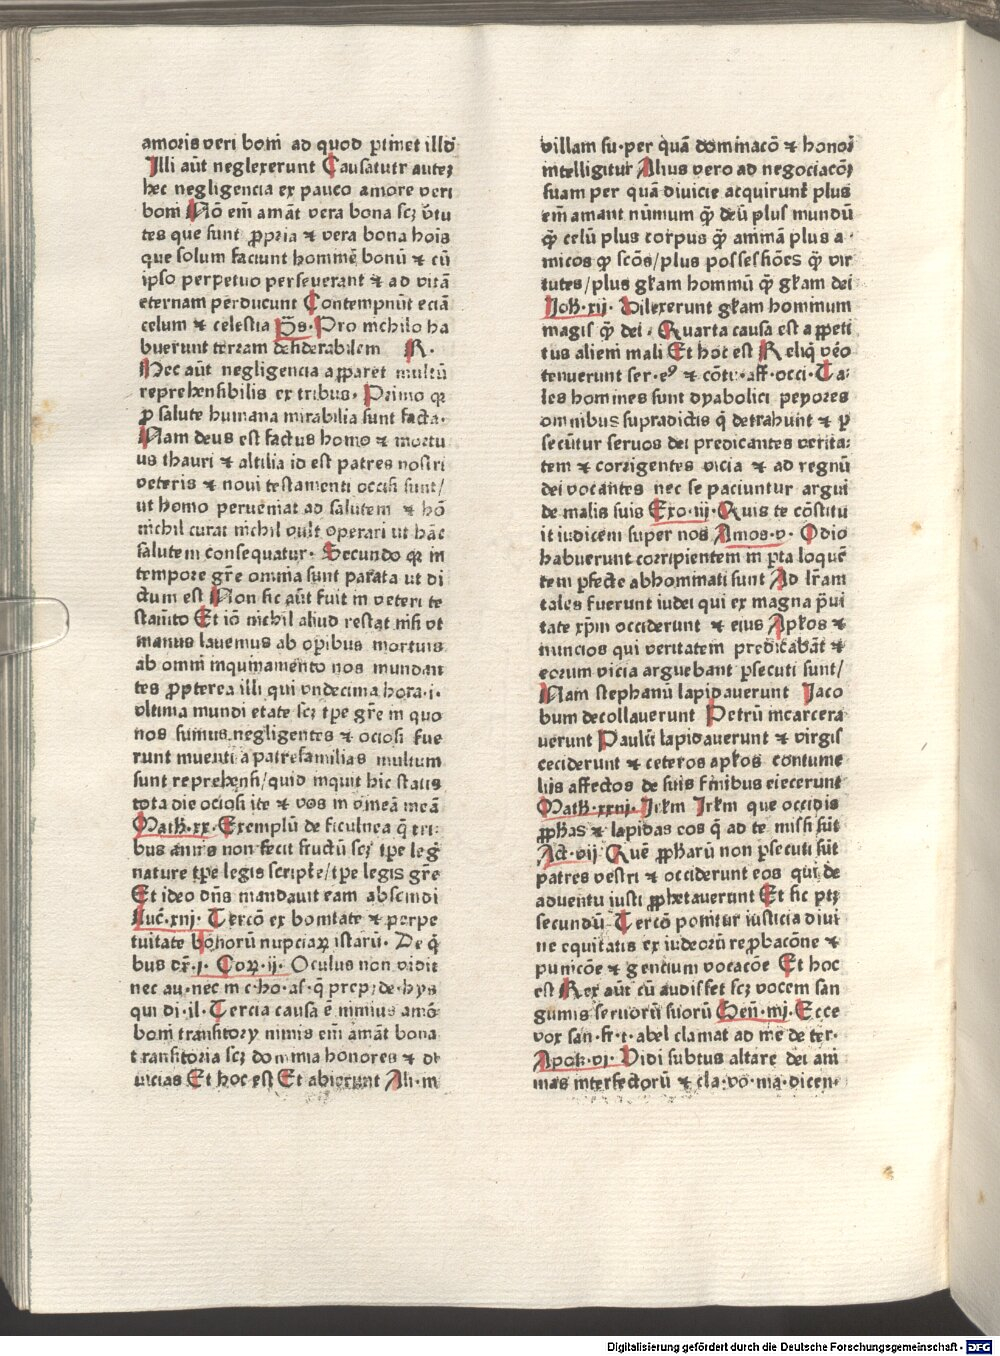 amoris veri boni ad quod ptinet illd
Illi aūt neglexerunt Causatutr autez
hec negligencia ex pauco amore veri
boni Nō em̄ amāt vera bona scz v̄tu
tes que sunt ꝓpria ⁊ vera bona hois
que solum faciunt hominē bonū ⁊ cū
ipso perpetuo perseverant ⁊ ad vitā
eternam perducunt Contempnūt eciā
celum ⁊ celestia p̄s. Pro nichilo ha
buerunt terram desiderabilem R.
Hec aūt negligencia apparet multū
reprehensibilis ex tribus. Primo qꝛ
ꝓ salute humana mirabilia sunt facta.
Nam deus est factus homo ⁊ mortu
us thauri ⁊ altilia id est patres nostri
veteris ⁊ noui testamenti occisi sunt/
ut homo perueniat ad salutem ⁊ hō
nichil curat nichil vult operari ut hāc
salutem consequatur. Secundo qꝛ in
tempore gr̄e omnia sunt parata ut di
ctum est Non sic aūt fuit in veteri te
stam̄to Et iō nichil aliud restat nisi vt
manus lauemus ab oꝑibus mortuis
ab omni inquinamento nos mundan
tes ꝓpterea illi qui vndecima hora.i.
vltima mundi etate scz tꝑe gr̄e in quo
nos sumus negligentes ⁊ ociosi fue
runt inuenti a patrefamilias multum
sunt reprehensi/quid inquit hic statis
tota die ociosi ite ⁊ vos in vineā meā
Math.xx. Exemplū de ficulnea q̄ tri:
bus annis non fecit fructū scz tꝑe leḡ
nature tꝑe legis scripte/tꝑe legis gr̄e
Et ideo dn̄s mandauit eam abscindi
Luc̄.xiij. Tercō ex bonitate ⁊ perpe
tuitate bonorū nupciaꝝ istarū. De q̄
bus dr̄.j. Coꝝ.ij. Oculus non vidit
nec au.nec in c.ho.as.q̄ prep;de.hys
qui di.il. Tercia causa ē nimius amō
boni transitory nimis em̄ amāt bona
transitoria scz dominia honores ⁊ di
uicias Et hoc est Et abierunt Ali.in
villam su.per quā dominacō ⁊ honor
intelligitur Alius vero ad negociacōꝫ
suam per quā diuicie acquirunt plus
em̄ amant nūmum q̄ꝫ deū plus mundū
q̄ꝫ celū plus corpus q̄ꝫ animā plus a.
micos qꝫ scōs/plus possessiōes q̄ꝫ vir
tutes/plus gl̄am hominū q̄ꝫ gl̄am dei
Joh̄.xij. Dilexerunt gl̄am hominum
magis q̄ꝫ dei. Quarta causa est appeti
tus alieni mali Et hoc est Reliq̄ vēo
tenuerunt ser.eꝰ ⁊ cōtu.aff.occi. Ta:
les homines sunt dyabolici peyores
omnibus supradictis q̄ detrahunt ⁊ ꝑ
secūtur seruos dei predicantes verita:
tem ⁊ corrigentes vicia ⁊ ad regnū
dei vocantes nec se paciuntur argui
de malis suis Exo.iij. Quis te cōstitu
it iudicem super nos Amos.v. Odio
habuerunt corripientem in pta loquē
tem ꝑfecte abhominati sunt Ad lr̄am
tales fuerunt iudei qui ex magna p̄ui
tate xp̄m occiderunt ⁊ eius Apłos ⁊
nuncios qui veritatem predicabāt ⁊
eorum vicia arguebant ꝑsecuti sunt/
Nam stephanū lapidauerunt Jaco
bum decollauerunt Petrū incarcera
uerunt Paulū lapidauerunt ⁊ virgis
ceciderunt ⁊ ceteros apłos contume
lijs affectos de suis finibus eiecerunt
Math̄.xxiij. Jrłm Jrłm que occidis
ꝓph̄as ⁊ lapidas eos q̄ ad te missi sūt
Act.vij Quē ꝓph̄arū non ꝑsecuti sūt
patres vestri ⁊ occiderunt eos qui de
aduentu iusti ꝓphetauerunt Et sic ptꝫ
secundū. Tercō ponitur iusticia diui
ne equitatis ex iudeorū reꝓbacōne ⁊
punicōe ⁊ gencium vocacōe Et hoc
est Rex aūt cū audisset scz vocem san
guinis seruorū suorū Gen̄.iiij. Ecce
vox san.fr.t.abel clamat ad me de ter.
Apok.vj. Vidi subtus altare dei ani
mas interfectorū ⁊ cla.vo.ma.dicen.
Digitalisierung gefördert durch die Deutsche Forschungsgemeinschaft - DFG